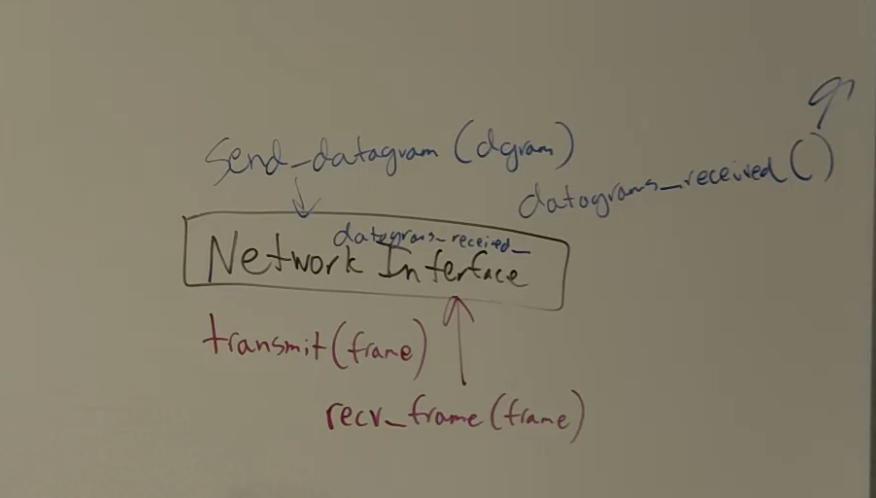 send_datagram (dgram)
datagrams_received()
datagrams_received_
Network Interface
transmit(frame)
recv_frame(frame)